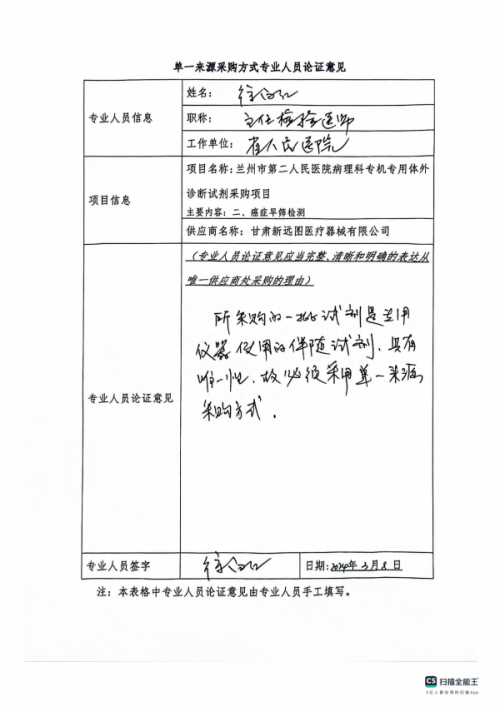 单一来源采购方式专业人员论证意见
专业人员信息
姓名：
职称：主任检验医师
工作单位：省人民医院
项目信息
项目名称：兰州市第二人民医院病理科专机专用体外
诊断试剂采购项目
主要内容：二、癌症早筛检测
供应商名称：甘肃新远图医疗器械有限公司
专业人员论证意见
（专业人员论证意见应当完整、清晰和明确的表达从
唯一供应商处采购的理由）
所采购的一批试剂是专用
仪器使用的伴随试剂，具有
唯一性，故必须采用单一来源
采购方式。
专业人员签字
日期：2024年3月8日
注：本表格中专业人员论证意见由专业人员手工填写。
CS 扫描全能王
3亿人都在用的扫描App